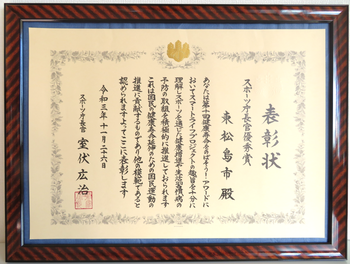 表彰状
スポーツ庁長官優秀賞
東松島市殿
あなたは第十回健康寿命をのばそう!アワードに
おいてスマートライフプロジェクトの趣旨を十分に
理解しスポーツを通じた健康増進や生活習慣病の
予防の取組を積極的に推進しておられます
これは国民の健康寿命延伸のための国民運動の
推進に貢献するものであり他の模範であると
認められますよってここに表彰します
令和三年十一月二十六日
スポーツ庁長官 室伏広治